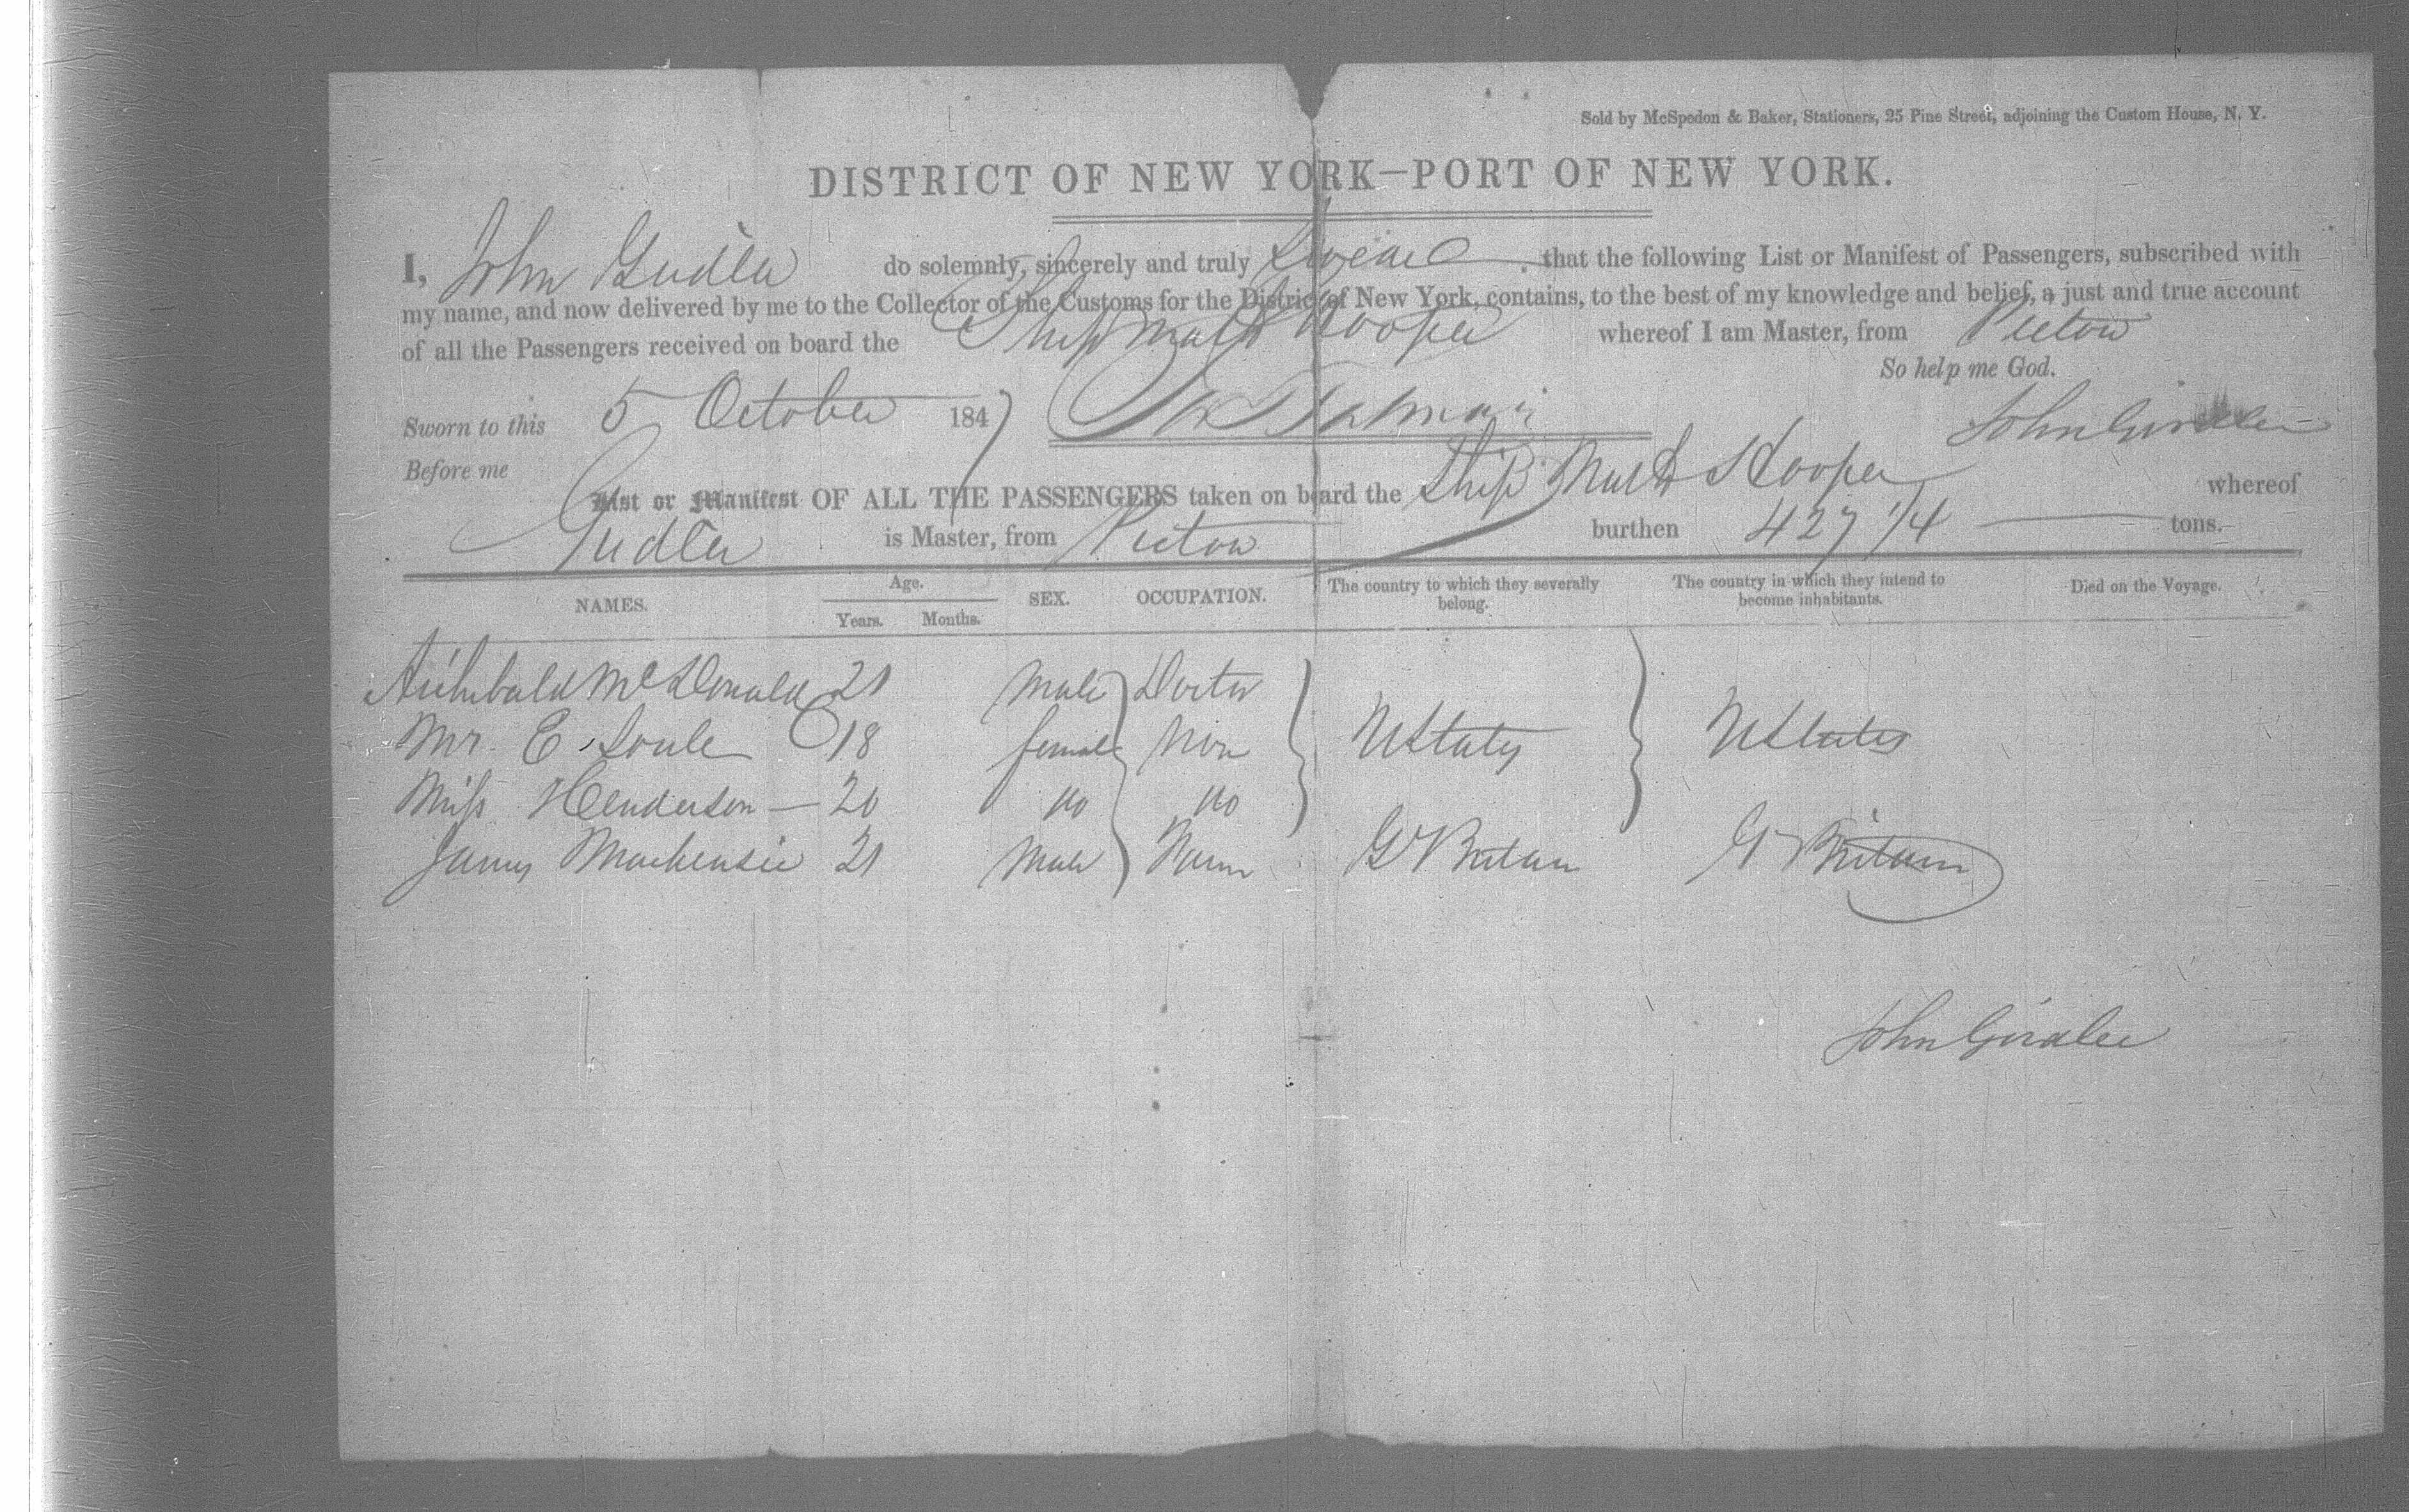 Sold by McSpedon & Baker, Stationers, 25 Pine Street, adjoining the Custom House, N. Y.
DISTRICT OF NEW YORK—PORT OF NEW YORK.
I, John Girdler do solemnly, sincerely and truly Swear that the following List or Manifest of Passengers, subscribed with
my name, and now delivered by me to the Collector of the Customs for the District of New York, contains, to the best of my knowledge and belief, a just and true account
of all the Passengers received on board the Ship Hooper whereof I am Master, from Pictou
So help me God.
Sworn to this 5 October 1847 John Girdler
Before me
List or Manifest OF ALL THE PASSENGERS taken on board the Ship Hooper whereof
Girdler is Master, from Pictou burthen 427 1/4 tons.
NAMES. Age. Years. Months. SEX. OCCUPATION. The country to which they severally belong. The country in which they intend to become inhabitants. Died on the Voyage.
Archibald McDonald 21 Male Doctor
Mr. E. Soule 18 female Non UStates UStates
Miss Henderson — 20 Do Do
James Mackensie 21 Male Non Gt Britain Gt Britain
John Girdler